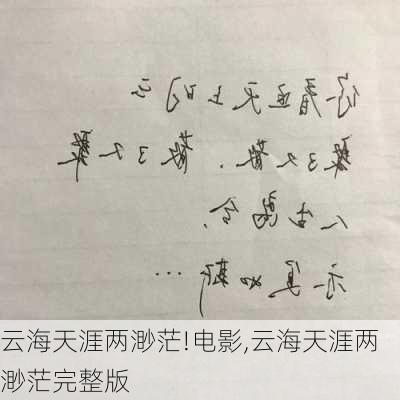 你看这天上的云
聚了又散,散了又聚
人生离合,
亦复如斯…
云海天涯两渺茫!电影,云海天涯两
渺茫完整版